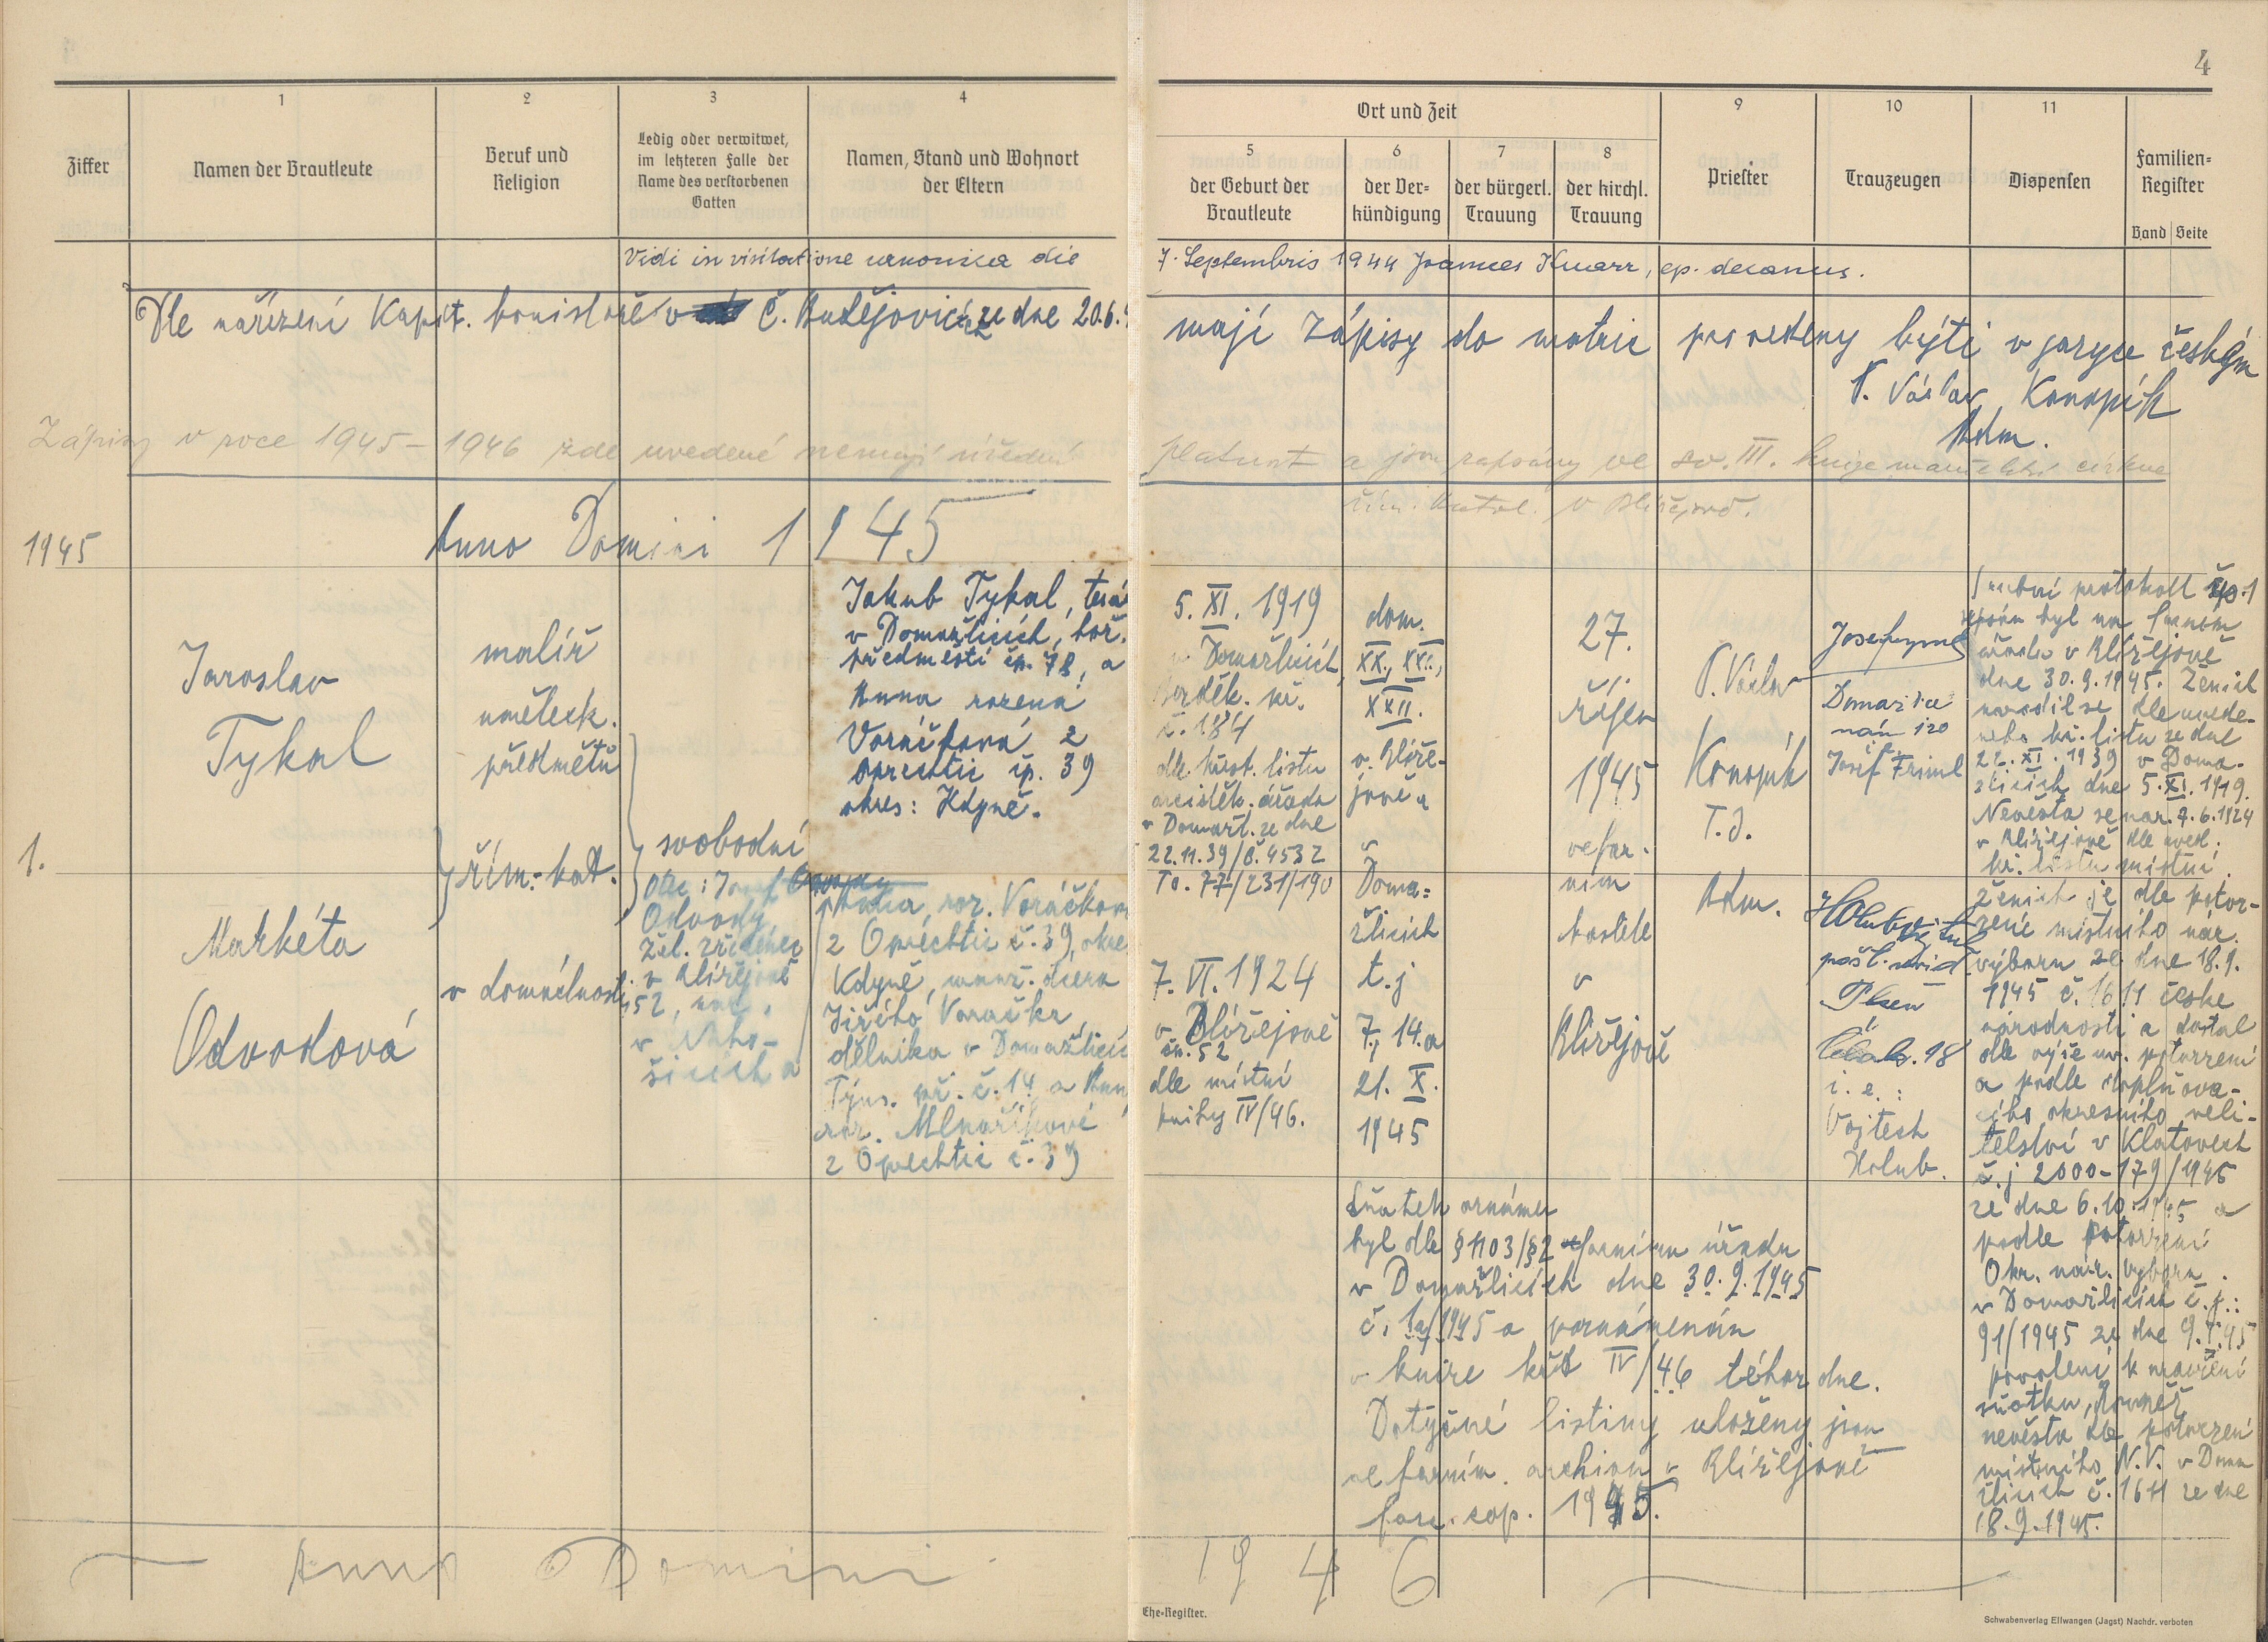 4
Ziffer
1
Namen der Brautleute
2
Beruf und
Religion
3
Ledig oder verwitwet,
im letzteren Falle der
Name des verstorbenen
Gatten
4
Namen, Stand und Wohnort
der Eltern
Ort und Zeit
5
der Geburt der
Brautleute
6
der Ver-
kündigung
7
der bürgerl.
Trauung
8
der kirchl.
Trauung
9
Priester
10
Trauzeugen
11
Dispensen
Familien-
Register
Band Seite
Vidi in visitatione canonica die 7. Septembris 1944 Joannes Knarr, ep. decanus.
Dle nařízení Kapit. konistoře v Č. Budějovicích ze dne 20.6.
mají zápisy do matric provedeny býti v jazyce českém
P. Václav Konopík
Adm.
Zápisy v roce 1945-1946 zde uvedené nemají úřední
platnost a jsou zapsány ve sv. III. knize manželství církve
řím. katol. v Blížejově.
1945
Anno Domini 1945
1.
Jaroslav
Tykal
Markéta
Odvodová
malíř
uměleck.
předmětů
řím.-kat.
v domácnosti
svobodní
Otec: Josef
Odvody,
žel. zřízenec
v Blížejově
52, nar.
v Naho-
šicích a
Jakub Tykal,
v Domažlicích, hoř.
předměstí čp. 78, a
Anna rozená
Voráčková z
Oprechtic čp. 39
okres: Kdyně.
Anna, roz. Voráčkov
z Oprechtic č. 39, okre
Kdyně, manž. dcera
Jiřího Voráčka
dělníka v Domažlicí
Týn. př. č. 14 a Ann
roz. Mlnaříkové
z Oprechtic č. 39
5. XI. 1919
v Domažlicích
č. 184
dle křest. listu
arciděk. úřadu
v Domažl. ze dne
22.11.39/č. 4532
To. 77/231/190
7. VI. 1924
v Blížejově
čp. 52
dle místní
knihy IV/46.
dom.
XX., XXI.,
XXII.
v Blíže-
jově a
v
Doma-
žlicích
t.j
7., 14. a
21. X.
1945
27.
října
1945
ve far-
ním
kostele
v
Blížejově
P. Václav
Konopík
T. J.
Adm.
Domažlice
nám 120
Josef Friml
pošt.
Plzeň
i. e.:
Vojtěch
Holub.
Snubní protokoll čp. 1
sepsán byl na farním
úřadu v Blížejově
dne 30.9.1945. Ženich
narodil se dle uvede-
ného kř. listu ze dne
22. XI. 1939 v Doma-
žlicích dne 5. XI. 1919.
Nevěsta se nar. 7.6.1924
v Blížejově dle uved.
kř. listu místní.
ženich je dle potvr-
zení místního nár.
výboru ze dne 18.9.
1945 č. 1611 české
národnosti a dostal
dle výše uv. potvrzení
a podle doplňova-
cího okresního veli-
telství v Klatovech
č.j 2000-179/1945
ze dne 6.10.1945 a
podle potvrzení
Okr. nár. výboru
v Domažlicích č.j.:
91/1945 ze dne 9.X.45
povolení k uzavření
sňatku, rovněž
nevěsta dle potvrzení
místního N.V. v Doma
žlicích č. 1611 ze dne
18.9.1945.
Sňatek oznámen
byl dle § 1103/§2 farnímu úřadu
v Domažlicích dne 30.9.1945
č. 1a/1945 a poznamenán
v knize křt IV/46 téhož dne.
Dotyčné listiny uloženy jsou
ve farním archivu v Blížejově
fasc. cop. 1945.
Anno Domini 1946
Ehe-Register.
Schwabenverlag Ellwangen (Jagst) Nachdr. verboten